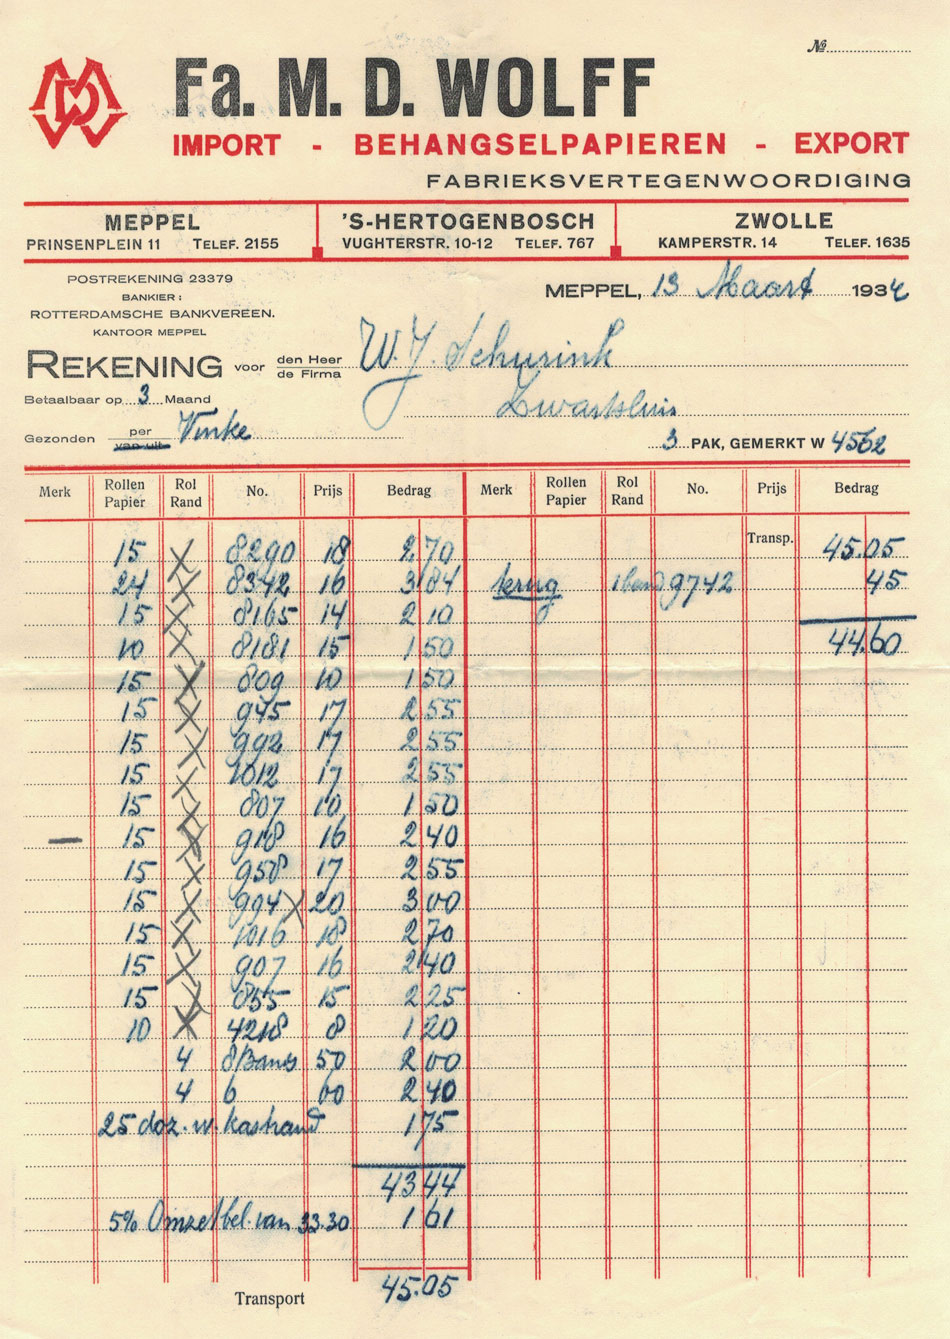 №
Fa. M. D. WOLFF
IMPORT - BEHANGSELPAPIEREN - EXPORT
FABRIEKSVERTEGENWOORDIGING
MEPPEL
PRINSENPLEIN 11 TELEF. 2155
'S-HERTOGENBOSCH
VUGHTERSTR. 10-12 TELEF. 767
ZWOLLE
KAMPERSTR. 14 TELEF. 1635
POSTREKENING 23379
BANKIER:
ROTTERDAMSCHE BANKVEREEN.
KANTOOR MEPPEL
MEPPEL, 13 Maart 1934
REKENING voor den Heer
de Firma
W. J. Schurink
Zwartsluis
Betaalbaar op 3 Maand
Gezonden per Vinke
van uit
3 PAK, GEMERKT W 4562
Merk Rollen Papier Rol Rand No. Prijs Bedrag Merk Rollen Papier Rol Rand No. Prijs Bedrag
15 8290 18 2.70 Transp. 45.05
24 8342 16 3 84 terug 9742 45
15 8165 14 2 10
10 8181 15 1 50 44.60
15 809 10 1 50
15 945 17 2 55
15 992 17 2 55
15 1012 17 2 55
15 807 10 1 50
15 918 16 2 40
15 958 17 2 55
15 994 20 3 00
15 1016 18 2 70
15 907 16 2 40
15 855 15 2 25
10 4218 8 1 20
4 50 2 00
4 6 60 2 40
25 doz. w. kastrand 1 75
43 44
5% Omzetbel. van 33.30 1 61
Transport 45.05